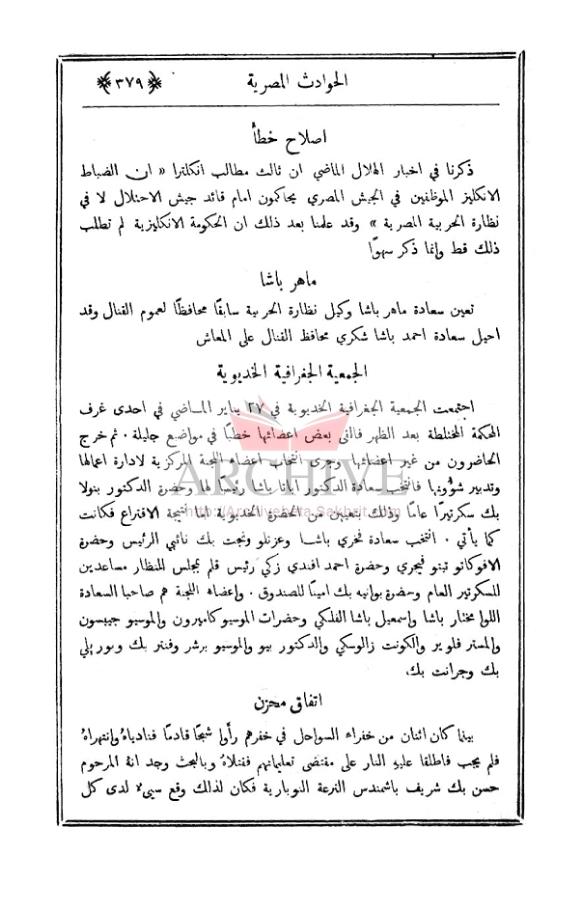 الحوادث المصرية
﴿٣٧٩﴾
اصلاح خطأ
ذكرنا في اخبار الهلال الماضي ان ثالث مطالب انكلترا « ان الضباط
الانكليز الموظفين في الجيش المصري يحاكمون امام قائد جيش الاحتلال لا في
نظارة الحربية المصرية » وقد علمنا بعد ذلك ان الحكومة الانكليزية لم تطلب
ذلك قط وانما ذكر سهوًا
ماهر باشا
تعين سعادة ماهر باشا وكيل نظارة الحربية سابقًا محافظًا لعموم القنال وقد
احيل سعادة احمد باشا شكري محافظ القنال على المعاش
الجمعية الجغرافية الخديوية
اجتمعت الجمعية الجغرافية الخديوية في ٢٧ يناير الماضي في احدى غرف
المحكمة المختلطة بعد الظهر فالقى بعض اعضائها خطبًا في مواضيع جليلة . ثم خرج
الحاضرون من غير اعضائها وجرى انتخاب اعضاء اللجنة المركزية لادارة اعمالها
وتدبير شؤونها فانتخب سعادة الدكتور اباتا باشا رئيسًا لها وحضرة الدكتور بنولا
بك سكرتيرًا عامًا وذلك بتعيين من الحضرة الخديوية اما نتيجة الاقتراع فكانت
كما يأتي . انتخب سعادة فخري باشا وعزتلو ونجت بك نائبي الرئيس وحضرة
الافوكاتو تيتو فيجري وحضرة احمد افندي زكي رئيس قلم بمجلس للنظار مساعدين
للسكرتير العام وحضرة بوانيه بك امينًا للصندوق . واعضاء اللجنة هم صاحبا السعادة
اللوا مختار باشا واسمعيل باشا الفلكي وحضرات الموسيو كاميرون والموسيو جيبسون
والمستر فلوير والكونت زالوسكي والدكتور بيو والموسيو برشر وفنتر بك وبوريلي
بك وجرانت بك
اتفاق محزن
بينما كان اثنان من خفراء السواحل في خفرهم رأوا شبحًا قادمًا فنادياهُ وانتهراهُ
فلم يجب فاطلقا عليهِ النار على مقتضى تعليماتهم فقتلاهُ وبالبحث وجد انهُ المرحوم
حسن بك شريف باشمندس الترعة النوبارية فكان لذلك وقع سيىء لدى كل
ARCHIVE
http://Archivebeta.Sakhrit.com